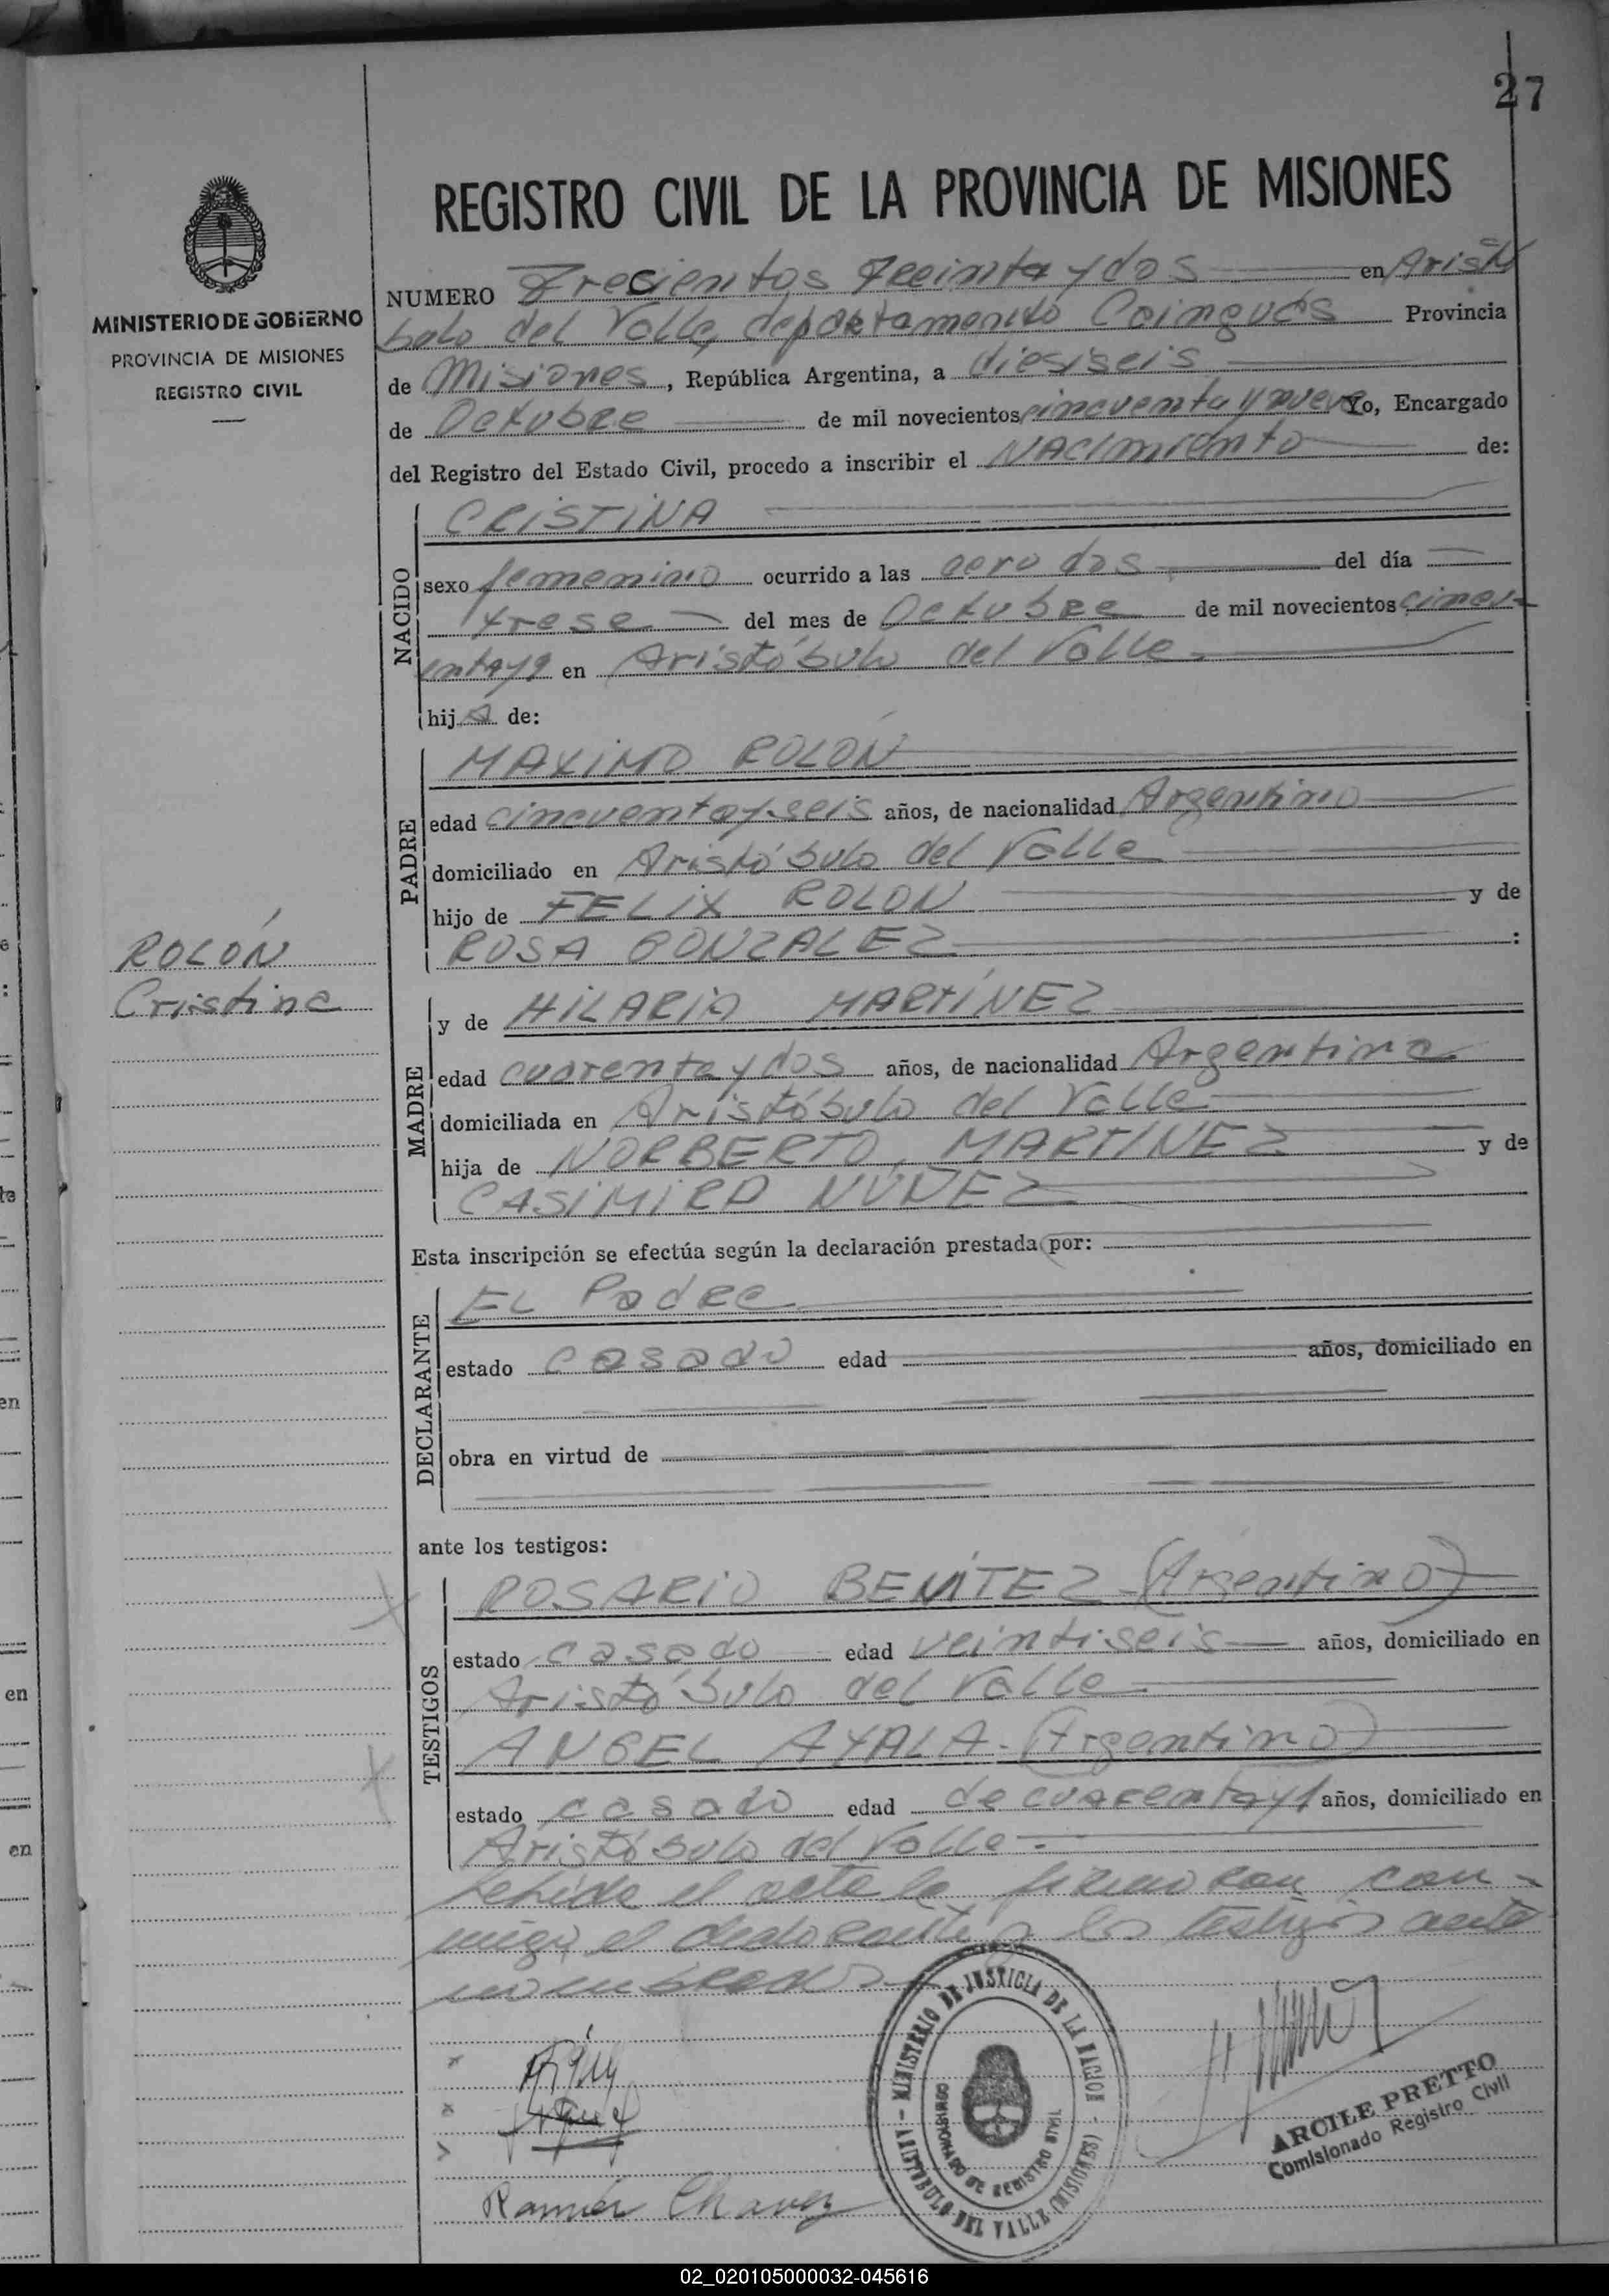 27
REGISTRO CIVIL DE LA PROVINCIA DE MISIONES
MINISTERIO DE GOBIERNO
PROVINCIA DE MISIONES
REGISTRO CIVIL
NUMERO Trecientos Treinta y dos en Aristó
bulo del Valle, departamento Cainguás Provincia
de Misiones, República Argentina, a diesiseis
de Octubre de mil novecientos cincuenta y nueve Yo, Encargado
del Registro del Estado Civil, procedo a inscribir el NACIMIENTO de:
NACIDO
CRISTINA
sexo femenino ocurrido a las cero dos del día
trese del mes de Octubre de mil novecientos cincu-
enta y 9 en Aristóbulo del Valle.
hija de:
PADRE
MAXIMO ROLÓN
edad cincuenta y seis años, de nacionalidad Argentino
domiciliado en Aristóbulo del Valle
hijo de FELIX ROLON y de
ROSA GONZALEZ :
ROLÓN
Cristina
MADRE
y de HILARIA MARTÍNEZ
edad cuarenta y dos años, de nacionalidad Argentina
domiciliada en Aristóbulo del Valle
hija de NORBERTO MARTINEZ y de
CASIMIRA NUÑEZ
Esta inscripción se efectúa según la declaración prestada por:
DECLARANTE
EL Padre
estado casado edad años, domiciliado en
obra en virtud de
ante los testigos:
TESTIGOS
ROSARIO BENÍTEZ (Argentino)
estado casado edad veintiseis años, domiciliado en
Aristóbulo del Valle
ANGEL AYALA. (Argentino)
estado casado edad de cuarenta y 1 años, domiciliado en
Aristóbulo del Valle.
Leída el acta la firmaron con-
migo, el declarante y los testigos ante
nombrados
MINISTERIO DE JUSTICIA DE LA NACION
COMISIONADO DE REGISTRO CIVIL
ARISTOBULO DEL VALLE (MISIONES)
ARCILE PRETTO
Comisionado Registro Civil
Ramón Chavez
02_020105000032-045616